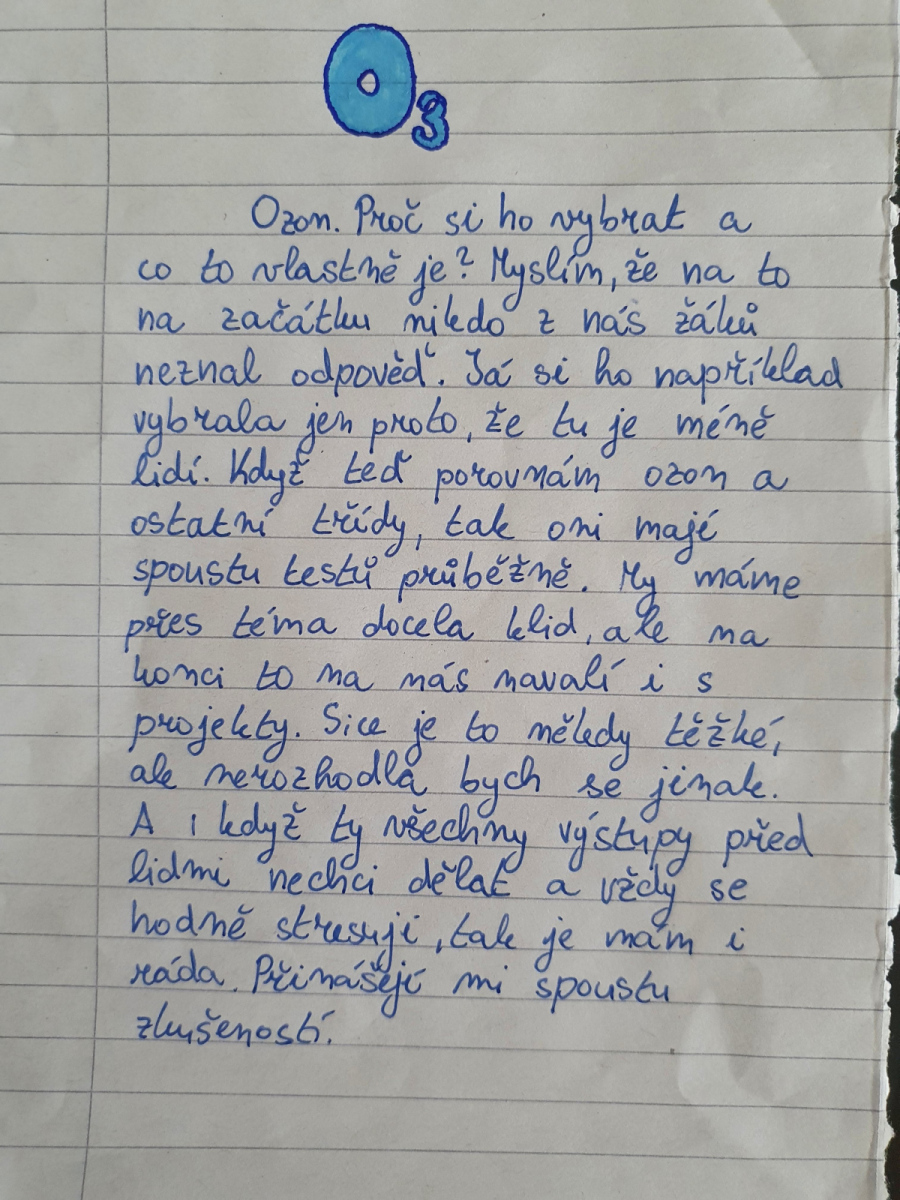 O3
Ozon. Proč si ho vybrat a
co to vlastně je? Myslím, že na to
na začátku nikdo z nás žáků
neznal odpověď. Já si ho například
vybrala jen proto, že tu je méně
lidí. Když teď porovnám ozon a
ostatní třídy, tak oni mají
spoustu testů průběžně. My máme
přes téma docela klid, ale na
konci to na nás navalí i s
projekty. Sice je to někdy těžké,
ale nerozhodla bych se jinak.
A i když ty všechny výstupy před
lidmi nechci dělat a vždy se
hodně stresuji, tak je mám i
ráda. Přinášejí mi spoustu
zkušeností.